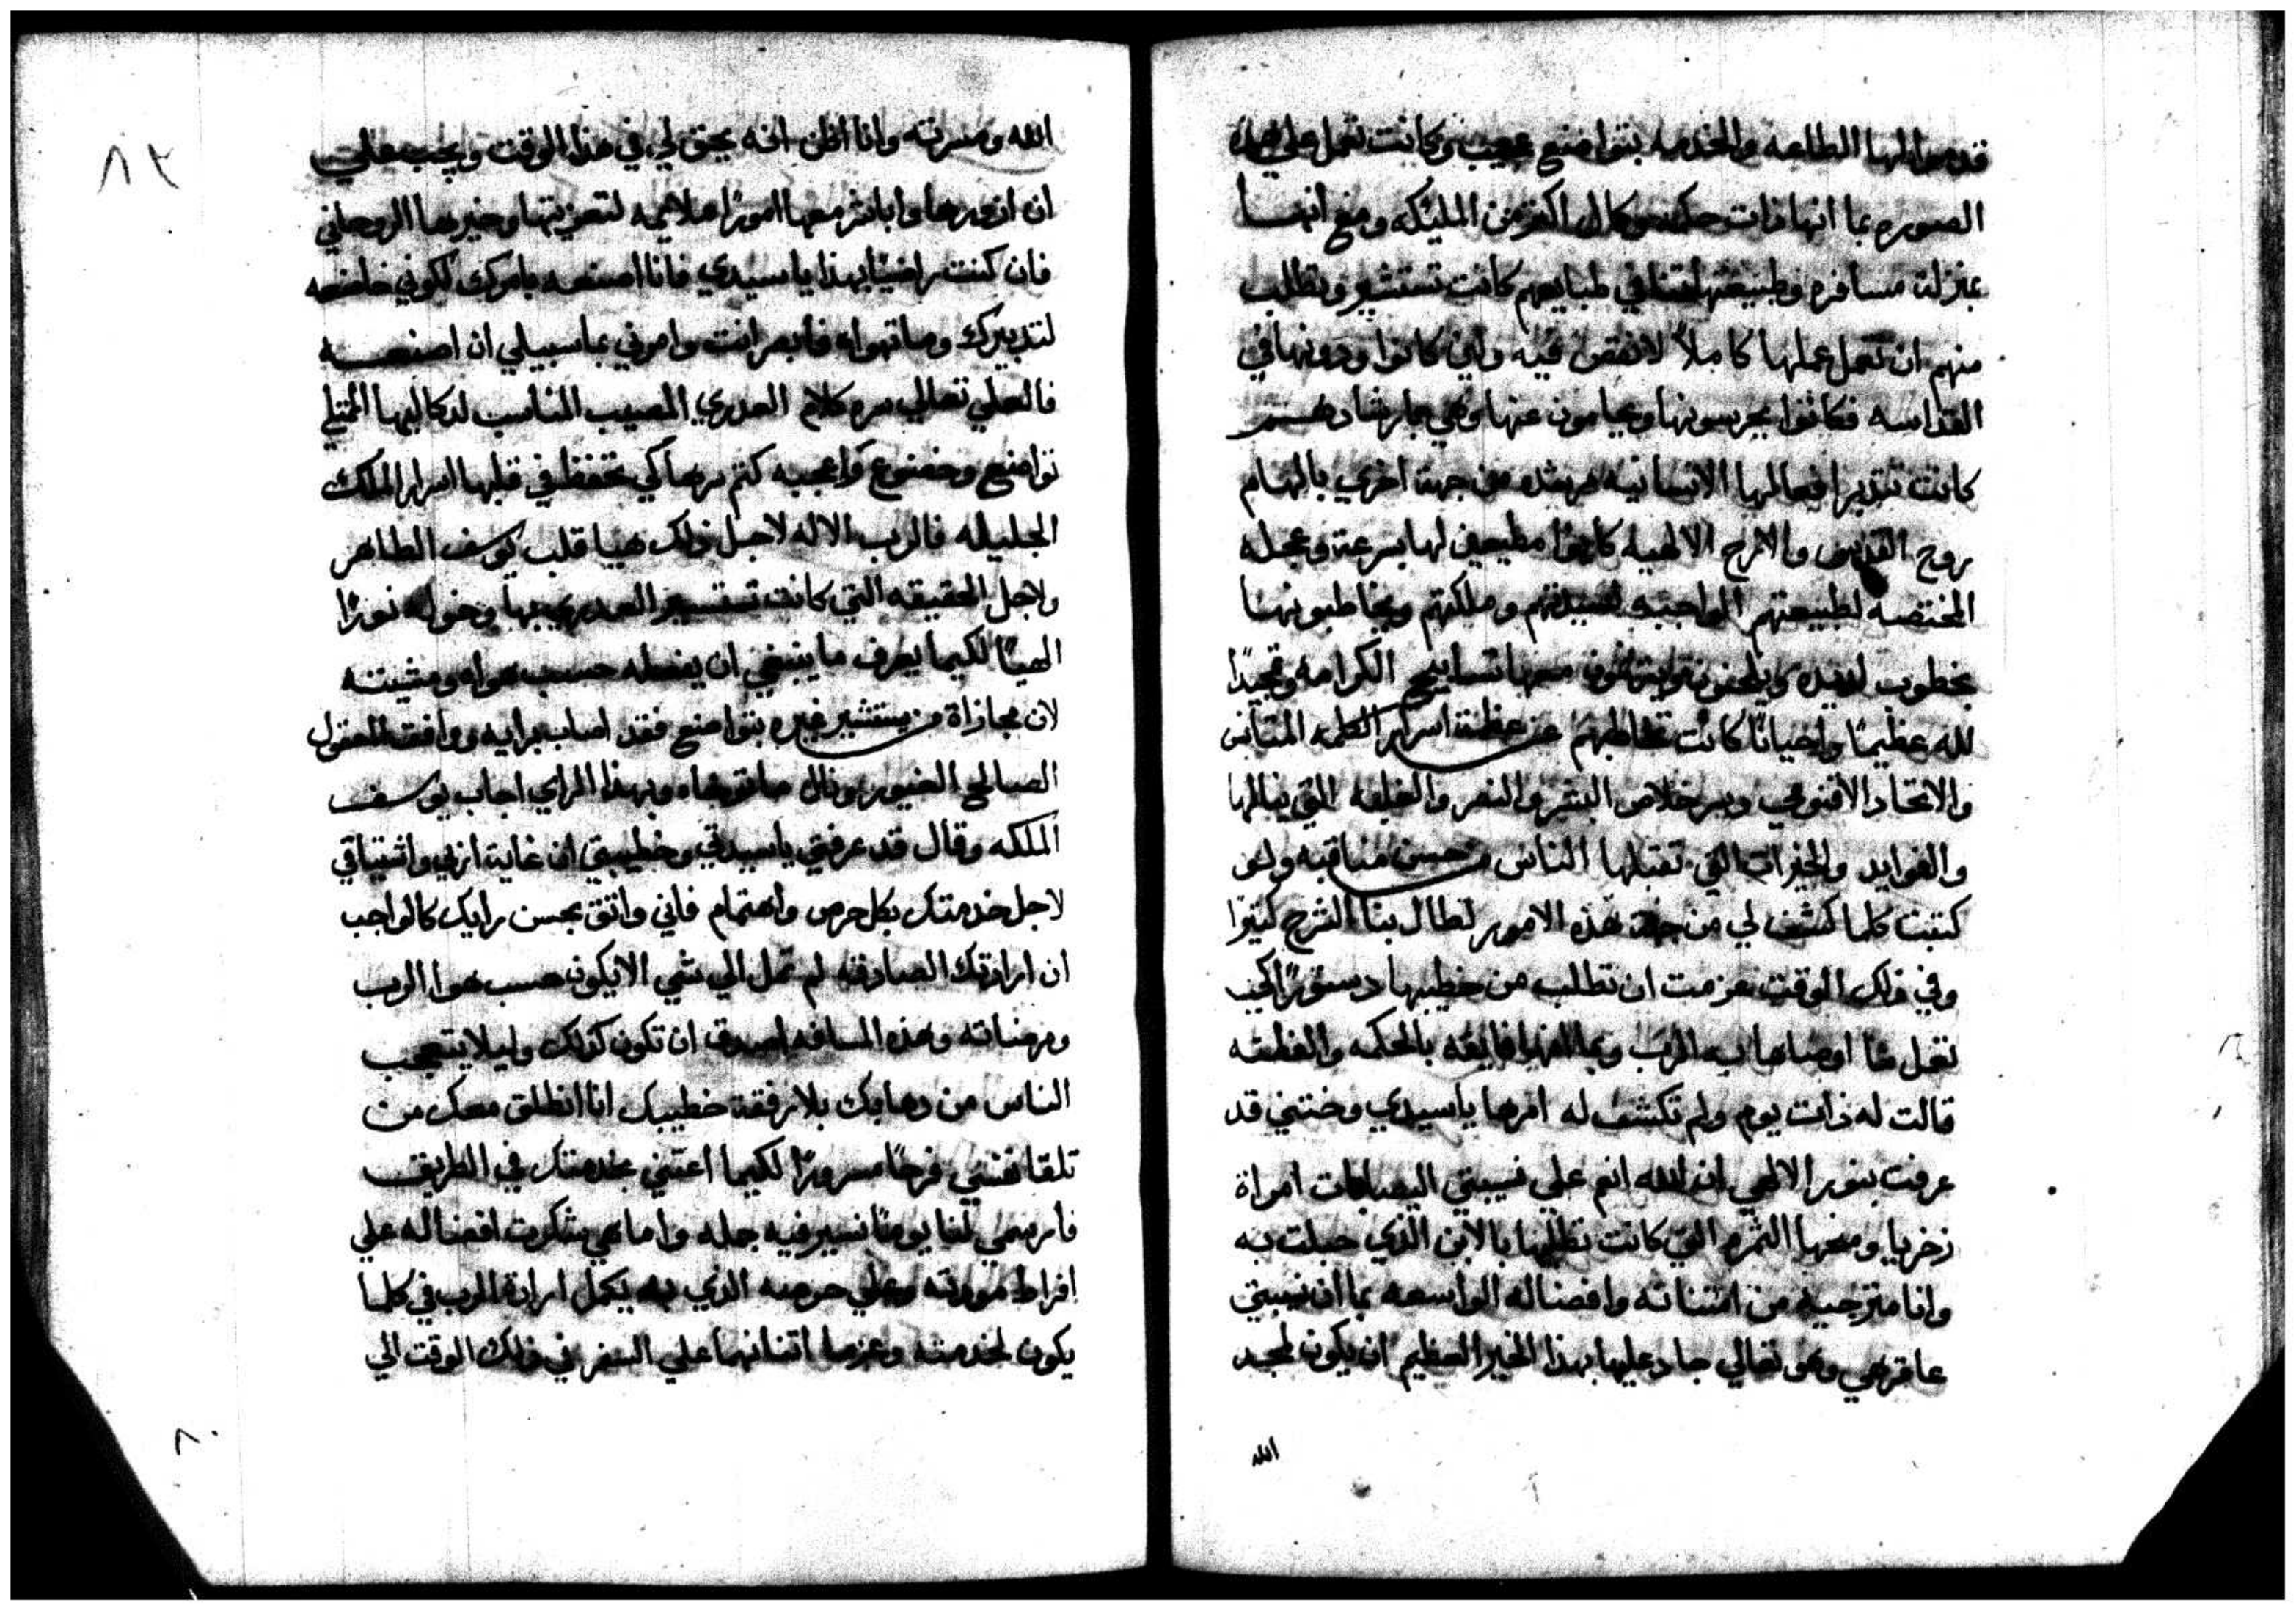 قدموا لها الطاعه والخدمه بتواضع عجيب وكانت تعمل علي هذه
الصوره بما انها ذات حكمه وكمال اكثر من المليكه ومع انهــا
بمنزلة مسافره وطبيعتها في طبايعهم كانت تستشير وتطلب
منهم ان تعمل عملها كاملاً لا نقص فيه ولين كانوا دونها في
القداسه فكانوا يحرسونها ويحامون عنها وهي بارشادهــم
كانت تتدبر افعالها الانسانيه مرشده من جهة اخري بالهام
روح القدس والارح الالهيه كانوا مطيعين لها بسرعة وعجله
المختصه لطبيعتهم الواجبه لسيدتهم وملكتهم ويخاطبونهــا
بخطوب لذيذه ويلحنون ويرتلون معها تسابيح الكرامه وتمجيدًا
لله عظيمًا واحيانًا كانت تخاطبهم عن عظمة اسرار الكلمه المتانس
والاتحاد الاقنومي وسر خلاص البشر والنصر والغلبه التي ينالها
والفوايد والخيرات التي تقبلها الناس من حسن مناقبه ولو
كتبت كلما كشف لي من جهة هذه الامور لطال بنا الشرح كثيرًا
وفي ذلك الوقت عزمت ان تطلب من خطيبها دستورًا لكي
تعمل ما اوصاها به الرب وبما انها فايقه بالحكمه والفطنه
قالت له ذات يوم ولم تكشف له امرها ياسيدي وختني قد
عرفت بنور الالهي ان الله انعم علي نسيبتي اليصابات امراة
زخريا ومنحها الثمره التي كانت تطلبها بالابن الذي حبلت به
وانا مترجيه من امتنانه وافضاله الواسعه بما ان نسيبتي
عاقر هي وهو تعالي جاد عليها بهذا الخير العظيم ان يكون لمجد
الله
٨٢
الله ومسرته وانا اظن انه يحق لي في هذا الوقت ويجب علي
ان ازورها واباشر معها امورًا ملايمه لتعزيتها وخيرها الروحاني
فان كنت راضيًا بهذا ياسيدي فانا اصنعه بامرك لكوني خاضعه
لتدبيرك وما تهواه فابصر انت وامرني بما سبيلي ان اصنعــه
فالعلي تعالي سره كلام العذري المصيب المناسب لذكاليها الممتلي
تواضع وخضوع واعجبه كتم سرها كي تحفظ في قلبها اسرار الملك
الجليله فالرب الاله لاجل ذلك هيا قلب يوسف الطاهر
ولاجل الحقيقه التي كانت تستسير العذري بها وخوله نورًا
الهيًا لكيما يعرف ما ينبغي ان يفعله حسب هواه ومشيتــه
لان مجازاة من يستشير غيره بتواضع فقد اصاب برايه ووافقت للعقول
الصالح الغيور ونال ما تقرضاه وبهذا الراي اجاب يوسف
الملكه وقال قد عرفتي ياسيدتي وخطيبتي ان غاية اربي واشتياقي
لاجل خدمتك بكل حرص واهتمام فاني واثق بحسن رايك كالواجب
ان ارادتك الصادقه لم تمل الي شي الا يكون حسب هوا الرب
ومرضاته وهذه المسافه اصدق ان تكون كذلك وليلا يتعجب
الناس من دهابك بلا رفقة خطيبك انا انطلق معك من
تلقا نفسي فرحًا مسرورًا لكيما اعتني بخدمتك في الطريق
فارسمي لنا يومًا نسير فيه جمله واما هي شكرت افضاله علي
افراط مودته وعلي حرصه الذي به يكمل ارادة الرب في كلما
يكون لخدمته وعزما اتنانهما علي السفر في ذلك الوقت الي
٨٠